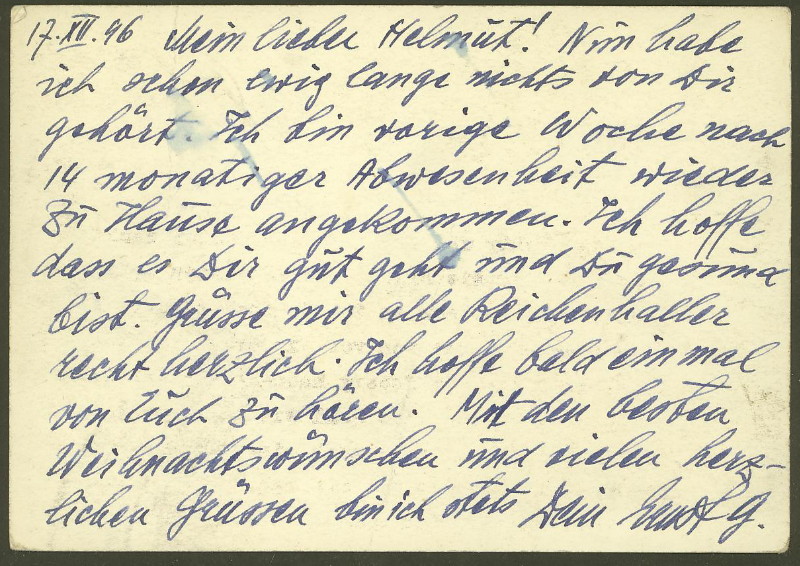 17.XII.46 Mein lieber Helmut! Nun habe
ich schon ewig lange nichts von Dir
gehört. Ich bin vorige Woche nach
14 monatiger Abwesenheit wieder
zu Hause angekommen. Ich hoffe
dass es Dir gut geht und Du gesund
bist. Grüsse mir alle Reichenhaller
recht herzlich. Ich hoffe bald einmal
von Euch zu hören. Mit den besten
Weihnachtswünschen und vielen herz-
lichen Grüssen bin ich stets Dein Ernst G.